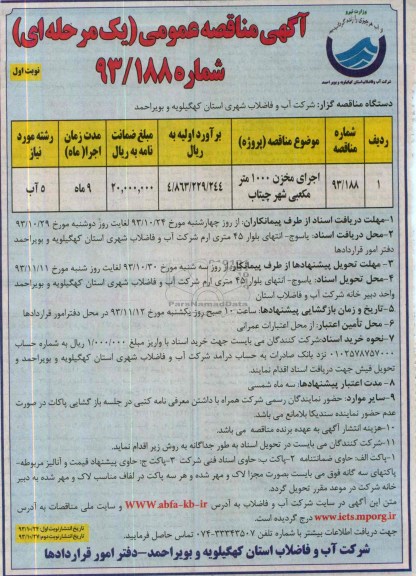 وزارت نیرو
شرکت آب و فاضلاب شهری استان کهگیلویه و بویراحمد
آگهی مناقصه عمومی (یک مرحله ای)
شماره ۹۳/۱۸۸
نوبت اول
دستگاه مناقصه گزار: شرکت آب و فاضلاب شهری استان کهگیلویه و بویراحمد
ردیف
شماره مناقصه
موضوع مناقصه (پروژه)
برآورد اولیه به ریال
مبلغ ضمانت نامه به ریال
مدت زمان اجرا( ماه)
رشته مورد نیاز
۱
۹۳/۱۸۸
اجرای مخزن ۱۰۰۰ متر مکعبی شهر چیتاب
۴/۸۶۳/۲۲۹/۲۴۴
۲۰,۰۰۰,۰۰۰
۹ ماه
۵ آب
۱-مهلت دریافت اسناد از طرف پیمانکاران: از روز چهارشنبه مورخ ۹۳/۱۰/۲۴ لغایت روز دوشنبه مورخ ۹۳/۱۰/۲۹
۲-محل دریافت اسناد: یاسوج- انتهای بلوار ۴۵ متری ارم شرکت آب و فاضلاب شهری استان کهگیلویه و بویراحمد
دفتر امور قراردادها
۳- مهلت تحویل پیشنهادها از طرف پیمانکاران: از روز سه شنبه مورخ ۹۳/۱۰/۳۰ لغایت روز شنبه مورخ ۹۳/۱۱/۱۱
۴-محل تحویل اسناد: یاسوج- انتهای بلوار ۴۵ متری ارم شرکت آب و فاضلاب شهری استان کهگیلویه و بویراحمد
واحد دبیر خانه شرکت آب و فاضلاب استان
۵-تاریخ و زمان بازگشایی پیشنهادها: ساعت ۱۰ صبح روز یکشنبه مورخ ۹۳/۱۱/۱۲ در محل دفتر امور قراردادها
۶- محل تأمین اعتبار: از محل اعتبارات عمرانی
۷-نحوه خرید اسناد:شرکت کنندگان می بایست جهت خرید اسناد با واریز مبلغ ۱/۰۰۰/۰۰۰ ریال به شماره حساب
۰۱۰۲۵۷۸۷۵۷۰۰۰ نزد بانک صادرات به حساب درآمد شرکت آب و فاضلاب شهری استان کهگیلویه و بویراحمد و
تحویل فیش جهت دریافت اسناد اقدام نمایند.
۸- مدت اعتبار پیشنهادها: سه ماه شمسی
۹-سایر موارد: حضور نمایندگان رسمی شرکت همراه با داشتن معرفی نامه کتبی در جلسه باز گشایی پاکات در صورت
عدم حضور نماینده سندیکا بلامانع می باشد.
۱۰-هزینه انتشار آگهی به عهده برنده مناقصه می باشد.
۱۱-شرکت کنندگان می بایست در تحویل اسناد به طور جداگانه به روش زیر اقدام نماید.
۱-پاکت الف: حاوی ضمانتنامه ۲-پاکت ب: حاوی اسناد فنی شرکت ۳-پاکت ج: حاوی پیشنهاد قیمت و آنالیز مربوطه-
پاکتهای سه گانه فوق می بایست بصورت مجزا لاک و مهر شده و هر سه پاکت در لفاف مناسب لاک و مهر شده به دبیر
خانه شرکت در موعد مقرر تحویل گردد.
متن این آگهی در سایت شرکت آب و فاضلاب به آدرس WWW.abfa-kb-ir و سایت ملی مناقصات به آدرس
www.iets.mporg.ir درج گردیده است.
جهت دریافت اطلاعات بیشتر با شماره تلفن ۰۷۴-۳۳۳۴۳۵۰۷ تماس حاصل فرمایید.
تاریخ انتشار نوبت اول ۹۳/۱۰/۲۴
تاریخ انتشار نوبت دوم ۹۳/۱۰/۲۷
شرکت آب و فاضلاب استان کهگیلویه و بویراحمد-دفتر امور قراردادها
ParsNamadData